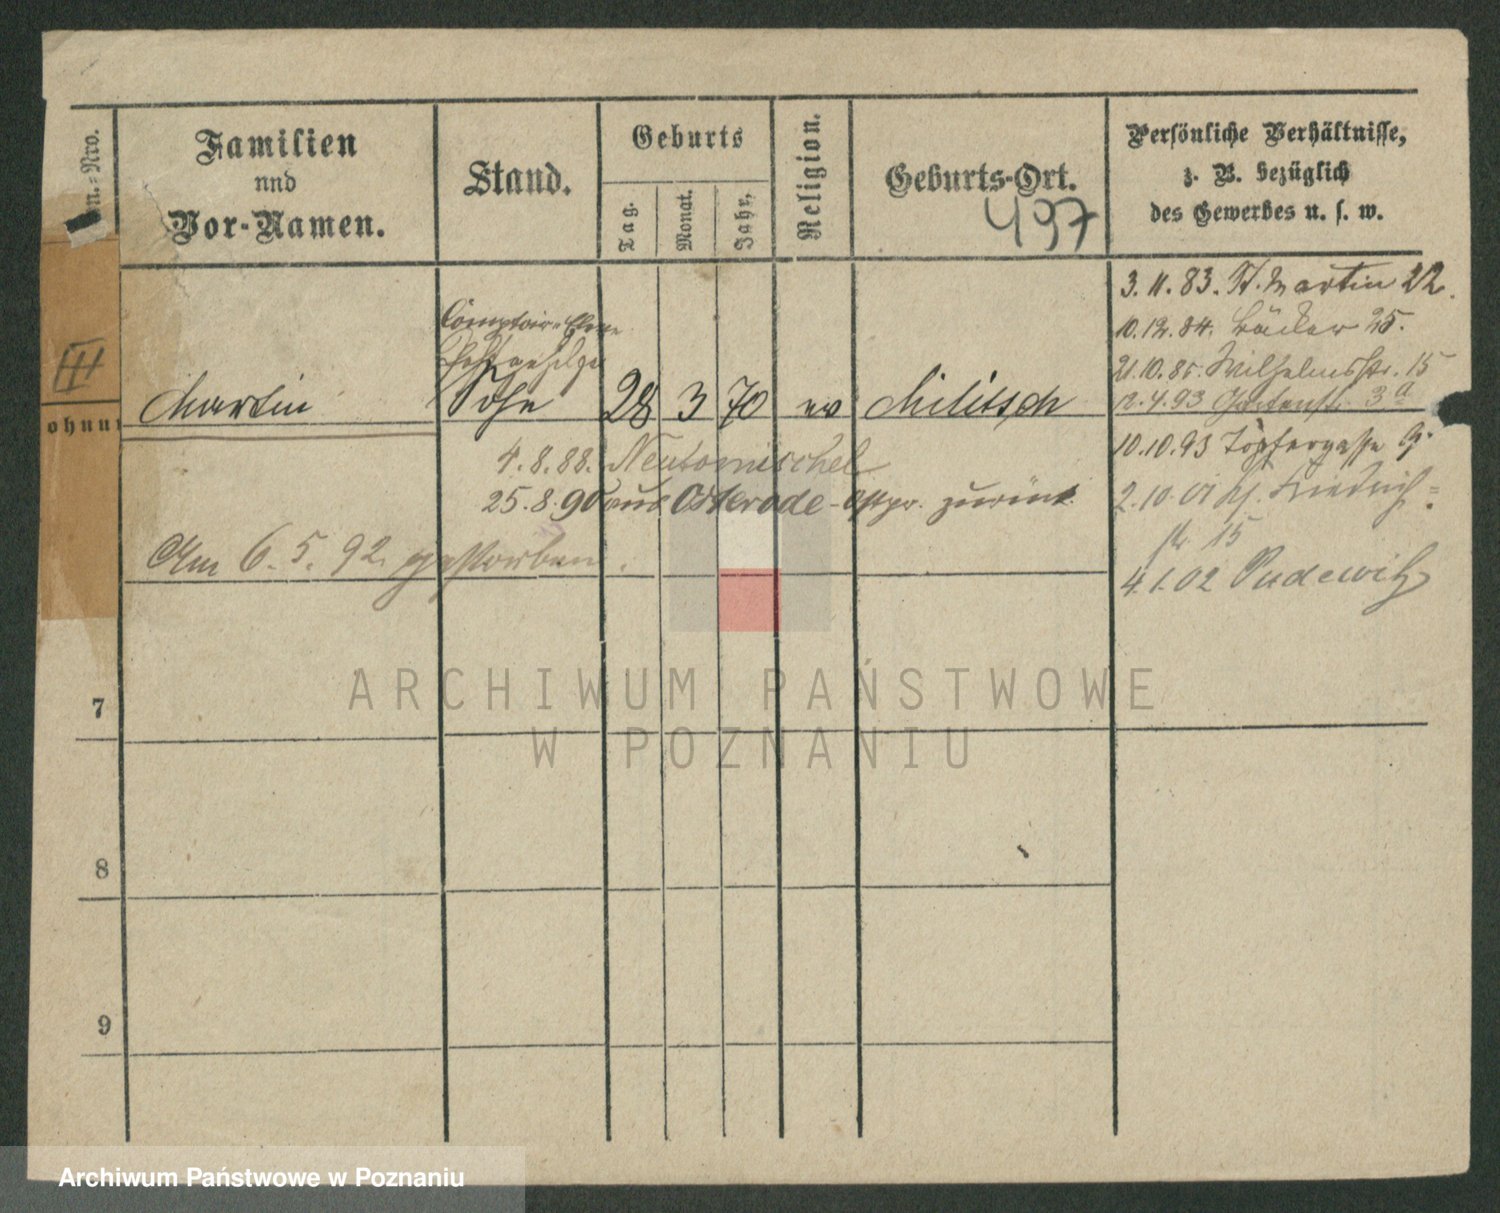 n.=Nro.
Familien
und
Vor-Namen.
Stand.
Geburts
Tag.
Monat.
Jahr,
Religion.
Geburts-Ort.
497
Persönliche Verhältnisse,
z. B. bezüglich
des Gewerbes u. s. w.
3.11.83. St. Martin 22.
10.12.84. Bäcker 25.
21.10.85. Wilhelmsstr. 15
12.4.93 Gartenstr. 3a
10.10.93 Töpfergasse 9.
2.10.01 Friedrich=
str 15
4.1.02 Pudewitz
III
ohnun
Comptoir-Eleve
Martin Sohn 28 3 70 ev Militsch
4.8.88. Neutomischel
25.8.90 aus Osterode-Ostpr. zurück.
Am 6.5.92. gestorben.
7
8
9
ARCHIWUM PAŃSTWOWE
W POZNANIU
Archiwum Państwowe w Poznaniu